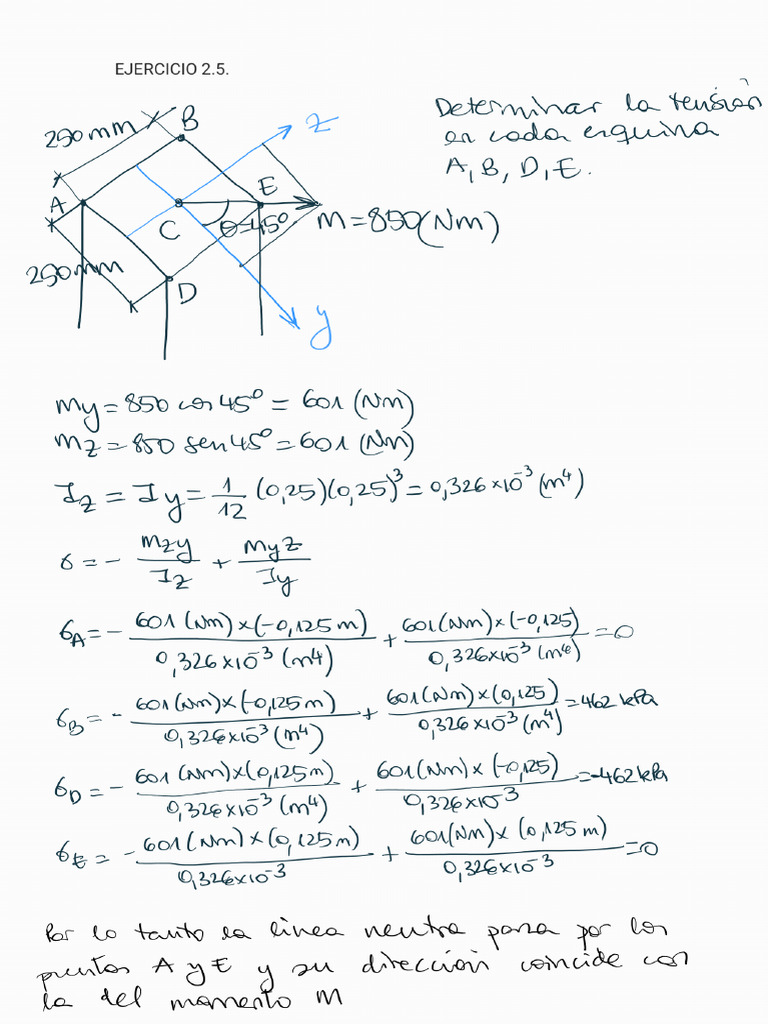 EJERCICIO 2.5.
Determinar la tensión
en cada esquina
A, B, D, E.
250 mm
B
z
A
E
C
θ=45º
M=850(Nm)
250 mm
D
y
My = 850 cos 45º = 601 (Nm)
Mz = 850 sen 45º = 601 (Nm)
Iz = Iy = 1/12 (0,25)(0,25)³ = 0,326×10⁻³ (m⁴)
σ = - Mzy/Iz + Myz/Iy
σA = - 601(Nm)×(-0,125m)/0,326×10⁻³(m⁴) + 601(Nm)×(-0,125)/0,326×10⁻³(m⁴) = 0
σB = - 601(Nm)×(-0,125m)/0,326×10⁻³(m⁴) + 601(Nm)×(0,125)/0,326×10⁻³(m⁴) = 462 kPa
σD = - 601(Nm)×(0,125m)/0,326×10⁻³(m⁴) + 601(Nm)×(-0,125)/0,326×10⁻³ = -462 kPa
σE = - 601(Nm)×(0,125m)/0,326×10⁻³ + 601(Nm)×(0,125m)/0,326×10⁻³ = 0
Por lo tanto la linea neutra pasa por los
puntos A y E y su dirección coincide con
la del momento M